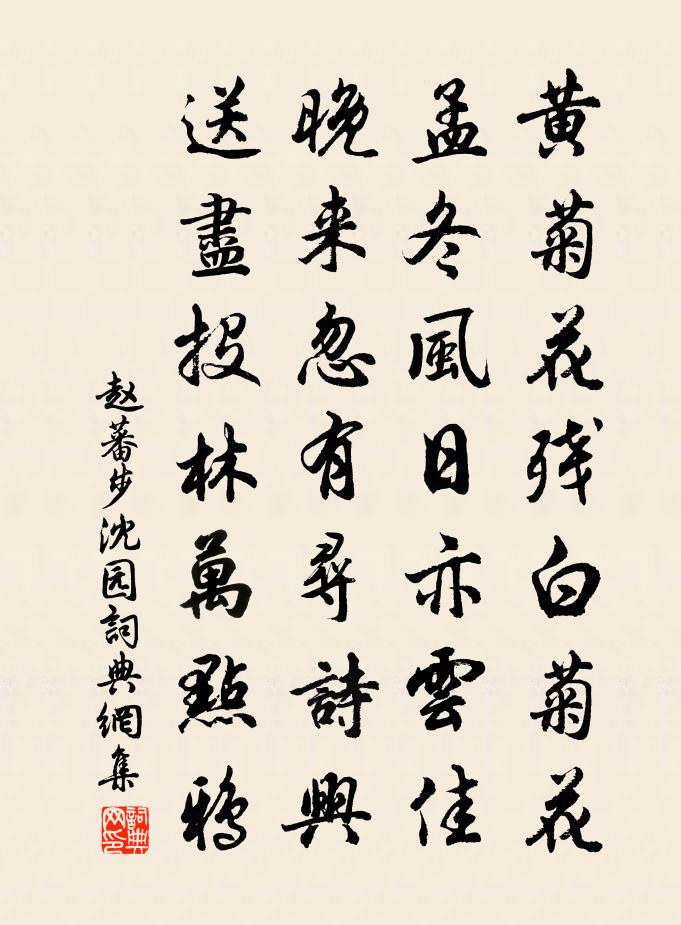 黄菊花残白菊花
孟冬風日亦雲佳
晚来忽有尋詩興
送盡投林萬點鴉
赵蕃步沈园詞典網集
詞典網印